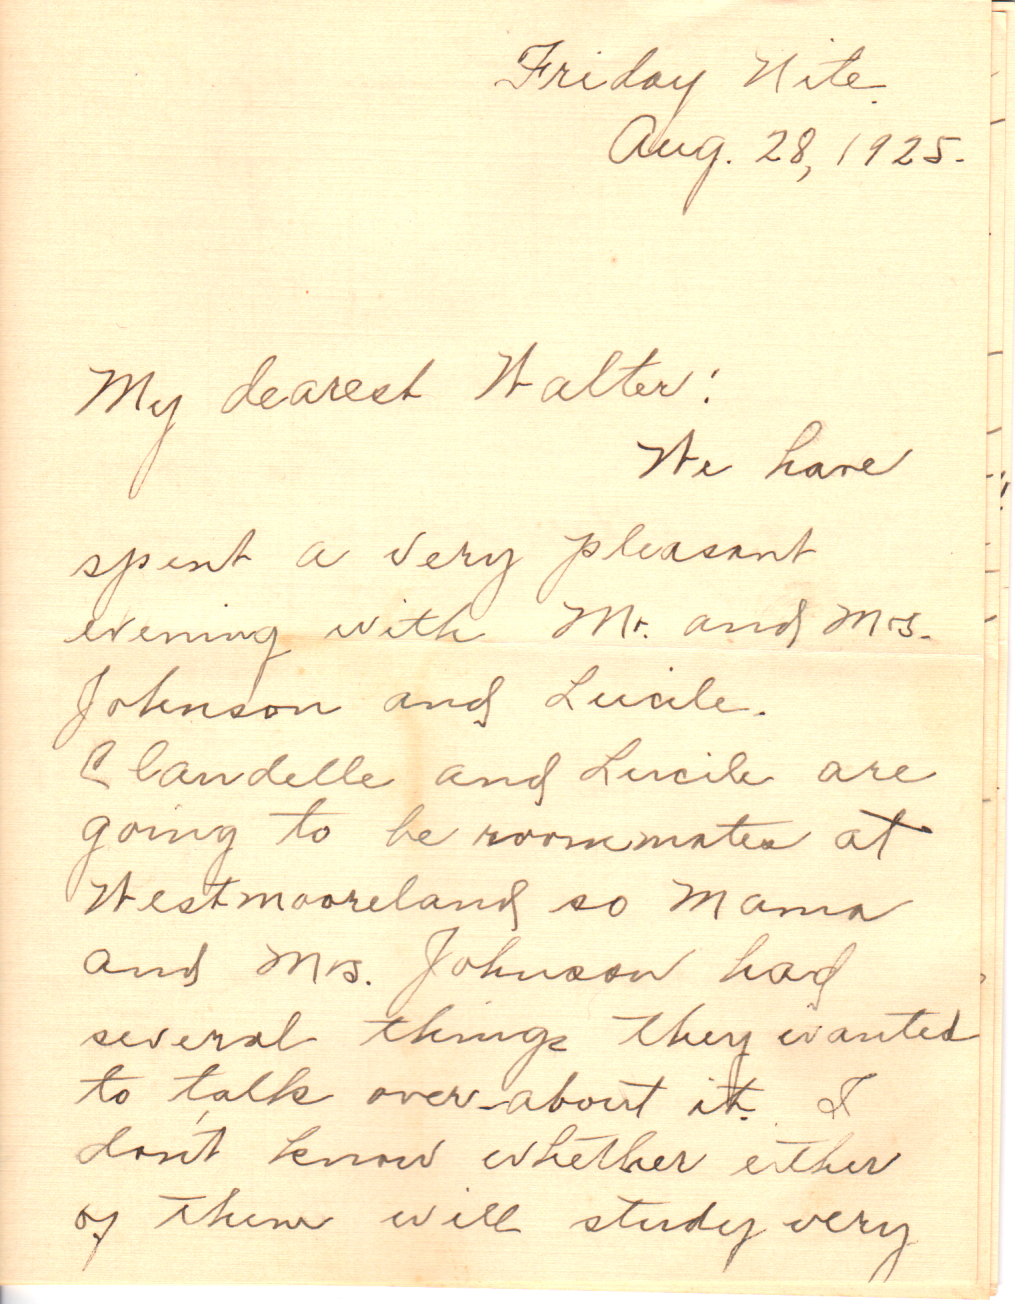 Friday Nite.
Aug. 28, 1925.
My dearest Walter:
We have
spent a very pleasant
evening with Mr. and Mrs.
Johnson and Lucile.
Claudelle and Lucile are
going to be roommates at
Westmooreland so Mama
and Mrs. Johnson had
several things they wanted
to talk over about it. I
don't know whether either
of them will study very